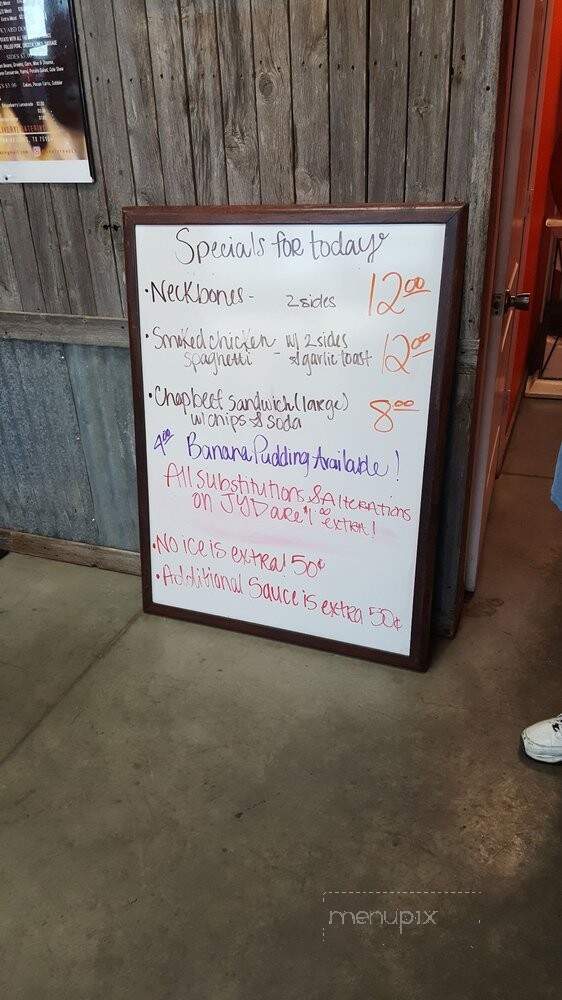 Specials for today
• Neckbones - 2 sides 12.00
• Smoked chicken w/ 2 sides
spaghetti - & garlic toast 12.00
• Chop beef sandwich (large)
w/ chips & soda 8.00
4.00 Banana Pudding Available!
All substitutions & Alterations
on JYD are 1.00 extra!
• No ice is extra! 50¢
• Additional Sauce is extra 50¢
menupix